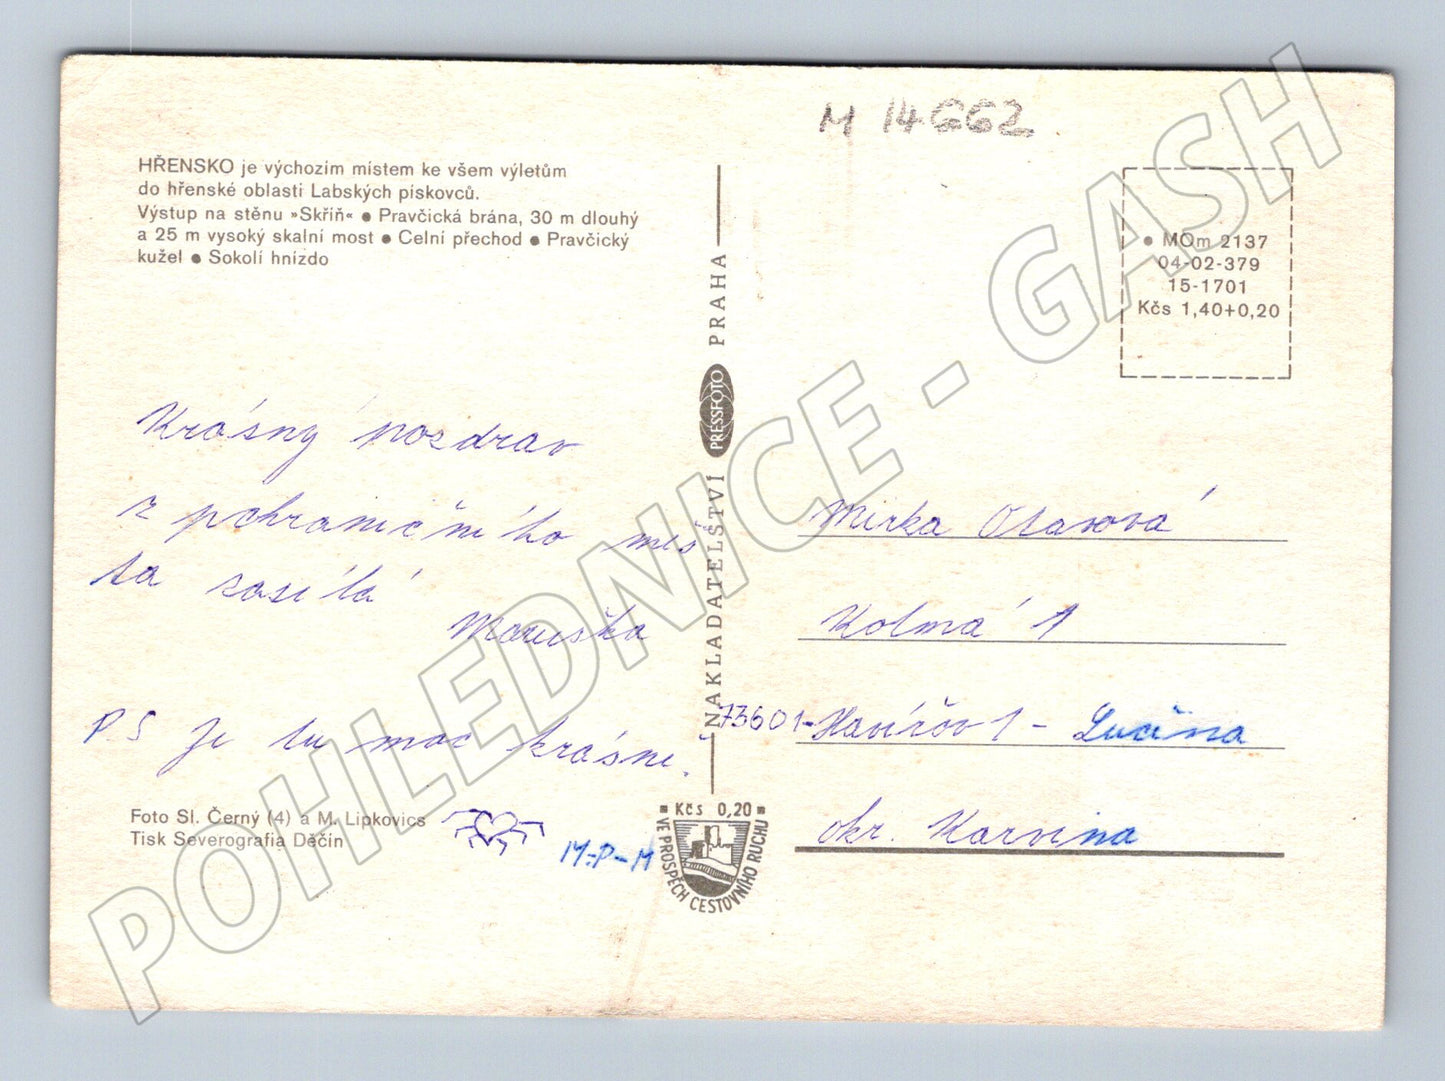 M 14662
HŘENSKO je výchozím místem ke všem výletům
do hřenské oblasti Labských pískovců.
Výstup na stěnu »Skříň« ● Pravčická brána, 30 m dlouhý
a 25 m vysoký skalní most ● Celní přechod ● Pravčický
kužel ● Sokolí hnízdo
● MOm 2137
04-02-379
15-1701
Kčs 1,40+0,20
Krásný pozdrav
z pohraničního měs
ta zasílá
Maruška
PS je tu moc krásně.
Foto Sl. Černý (4) a M. Lipkovics
Tisk Severografia Děčín
M-P-M
NAKLADATELSTVÍ PRESSFOTO PRAHA
Kčs 0,20
VE PROSPĚCH CESTOVNÍHO RUCHU
Mirka
Kolmá 1
73601-Havířov 1 - Lučina
okr. Karvina
POHLEDNICE - GASH